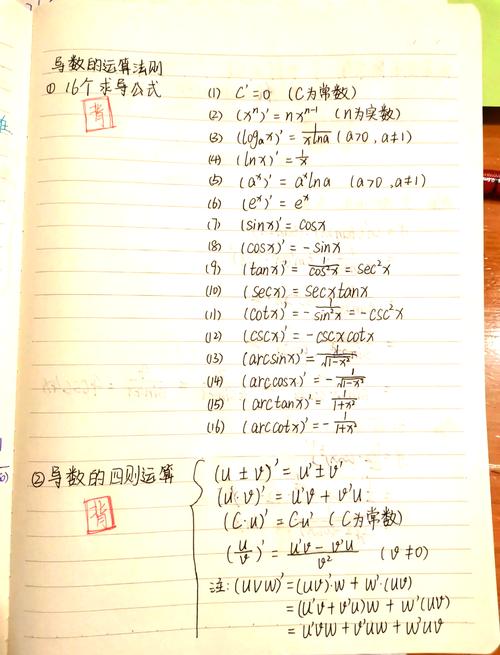 导数的运算法则
① 16个求导公式
背
(1) C'=0 (C为常数)
(2) (xⁿ)'=nxⁿ⁻¹ (n为实数)
(3) (logₐx)'=1/(xlna) (a>0,a≠1)
(4) (lnx)'=1/x
(5) (aˣ)'=aˣlna (a>0,a≠1)
(6) (eˣ)'=eˣ
(7) (sinx)'=cosx
(8) (cosx)'=-sinx
(9) (tanx)'=1/cos²x=sec²x
(10) (secx)=secxtanx
(11) (cotx)'=-1/sin²x=-csc²x
(12) (cscx)'=-cscxcotx
(13) (arcsinx)'=1/√(1-x²)
(14) (arccosx)'=-1/√(1-x²)
(15) (arctanx)'=1/(1+x²)
(16) (arccotx)'=-1/(1+x²)
② 导数的四则运算
背
(u±v)'=u'±v'
(u·v)'=u'v+v'u
(C·u)'=Cu' (C为常数)
(u/v)'=(u'v-v'u)/v² (v≠0)
注:(uvw)'=(uv)'·w+w'·(uv)
=(u'v+v'u)w+w'(uv)
=u'vw+v'uw+w'uv